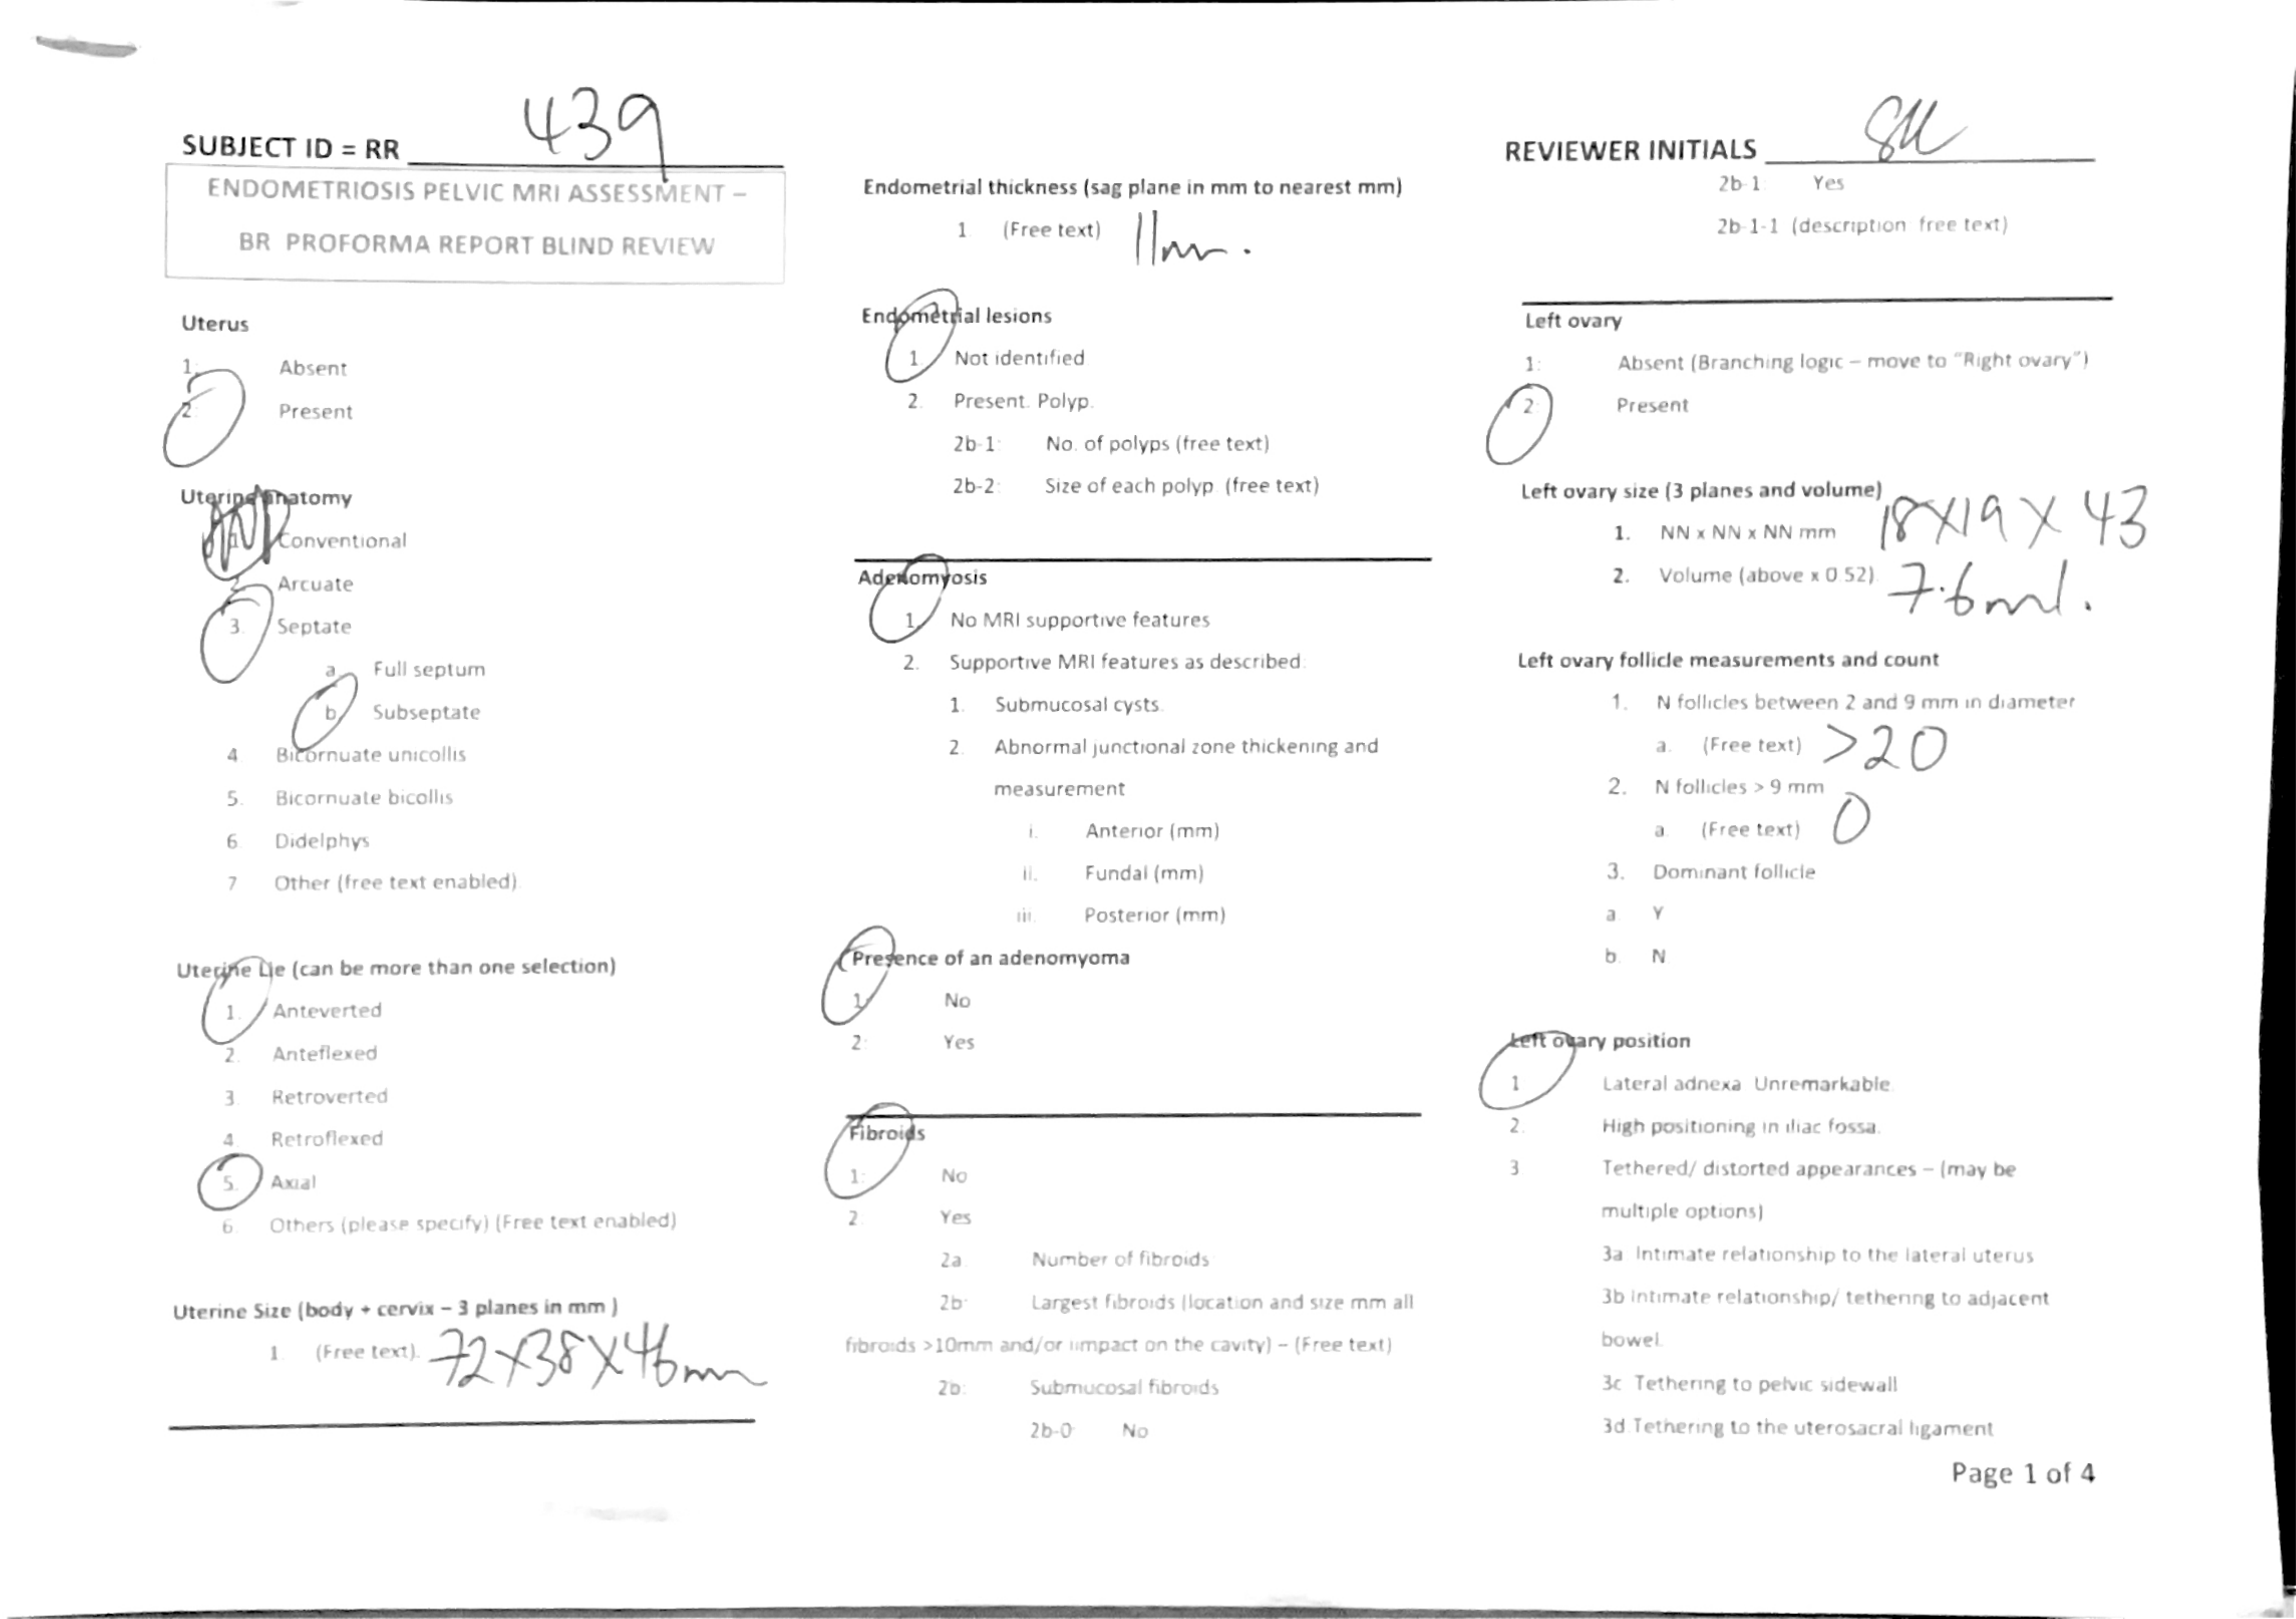 SUBJECT ID = RR 439
ENDOMETRIOSIS PELVIC MRI ASSESSMENT –
BR PROFORMA REPORT BLIND REVIEW
Uterus
1: Absent
2: Present
Uterine anatomy
1. Conventional
2. Arcuate
3. Septate
a. Full septum
b. Subseptate
4 Bicornuate unicollis
5. Bicornuate bicollis
6 Didelphys
7 Other (free text enabled)
Uterine Lie (can be more than one selection)
1. Anteverted
2. Anteflexed
3 Retroverted
4 Retroflexed
5. Axial
6 Others (please specify) (Free text enabled)
Uterine Size (body + cervix – 3 planes in mm )
1 (Free text). 72X38X46mm
Endometrial thickness (sag plane in mm to nearest mm)
1 (Free text) 11mm.
Endometrial lesions
1 Not identified
2. Present. Polyp.
2b-1: No. of polyps (free text)
2b-2: Size of each polyp (free text)
Adenomyosis
1. No MRI supportive features
2. Supportive MRI features as described:
1. Submucosal cysts.
2. Abnormal junctional zone thickening and
measurement
i. Anterior (mm)
ii. Fundal (mm)
iii. Posterior (mm)
Presence of an adenomyoma
1: No
2: Yes
Fibroids
1: No
2. Yes
2a Number of fibroids
2b: Largest fibroids (location and size mm all
fibroids >10mm and/or impact on the cavity) – (Free text)
2b: Submucosal fibroids
2b-0 No
REVIEWER INITIALS
2b-1: Yes
2b-1-1 (description free text)
Left ovary
1: Absent (Branching logic – move to "Right ovary")
2: Present
Left ovary size (3 planes and volume)
1. NN x NN x NN mm 18X19X43
2. Volume (above x 0.52). 7.6ml.
Left ovary follicle measurements and count
1. N follicles between 2 and 9 mm in diameter
a. (Free text) >20
2. N follicles > 9 mm
a. (Free text) 0
3. Dominant follicle
a Y
b. N
Left ovary position
1 Lateral adnexa Unremarkable.
2. High positioning in iliac fossa.
3 Tethered/ distorted appearances – (may be
multiple options)
3a Intimate relationship to the lateral uterus
3b Intimate relationship/ tethering to adjacent
bowel.
3c Tethering to pelvic sidewall
3d.Tethering to the uterosacral ligament
Page 1 of 4